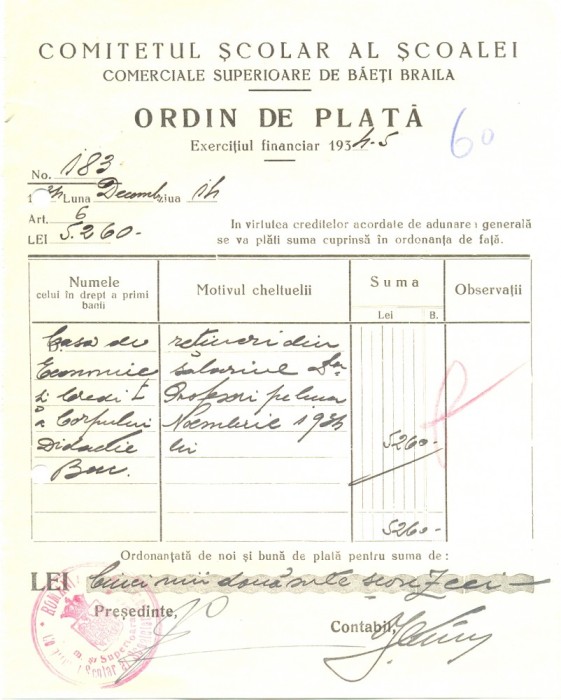 COMITETUL ŞCOLAR AL ŞCOALEI
COMERCIALE SUPERIOARE DE BĂEŢI BRAILA
ORDIN DE PLATĂ
60
Exerciţiul financiar 1934-5
No. 183
Luna Decembr ziua 14
Art. 6
LEI 5.260-
In virtutea creditelor acordate de adunarea generală
se va plăti suma cuprinsă în ordonanţa de faţă.
Numele
celui în drept a primi
banii
Motivul cheltuelii
Suma
Lei B.
Observaţii
Casa de
Economie
şi Credit
a Corpului
Didactic
Buc.
reţineri din
salariul
Profesori pe luna
Noembrie 1934
lei
5260-
5260-
Ordonanţată de noi şi bună de plată pentru suma de :
LEI Cinci mii două sute şease zeci -
Preşedinte,
Contabil,